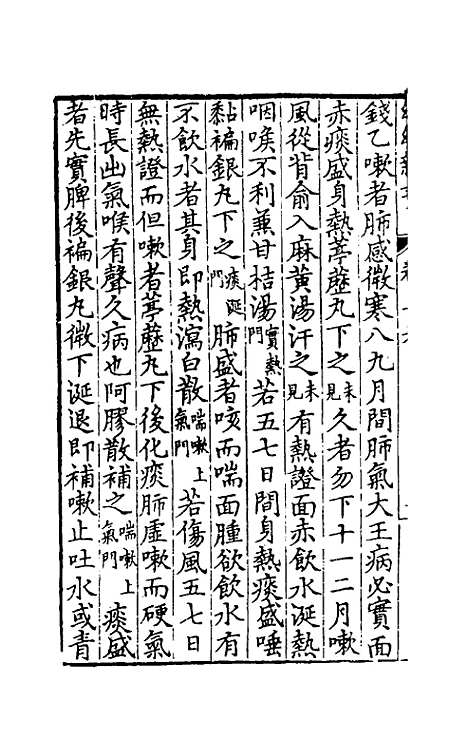 錢乙嗽者肺感微寒八九月間肺氣大王病必實面
赤痰盛身熱葶藶丸下之未見久者勿下十一二月嗽
風從背俞入麻黃湯汗之未見有熱證面赤飲水涎熱
咽喉不利兼甘桔湯實熱門若五七日間身熱痰盛唾
黏褊銀丸下之痰涎門肺盛者咳而喘面腫欲飲水有
不飲水者其身即熱瀉白散喘嗽上氣門若傷風五七日
無熱證而但嗽者葶藶丸下後化痰肺虛嗽而硬氣
時長出氣喉有聲久病也阿膠散補之喘嗽上氣門痰盛
者先實脾後褊銀丸微下涎退即補嗽止吐水或青